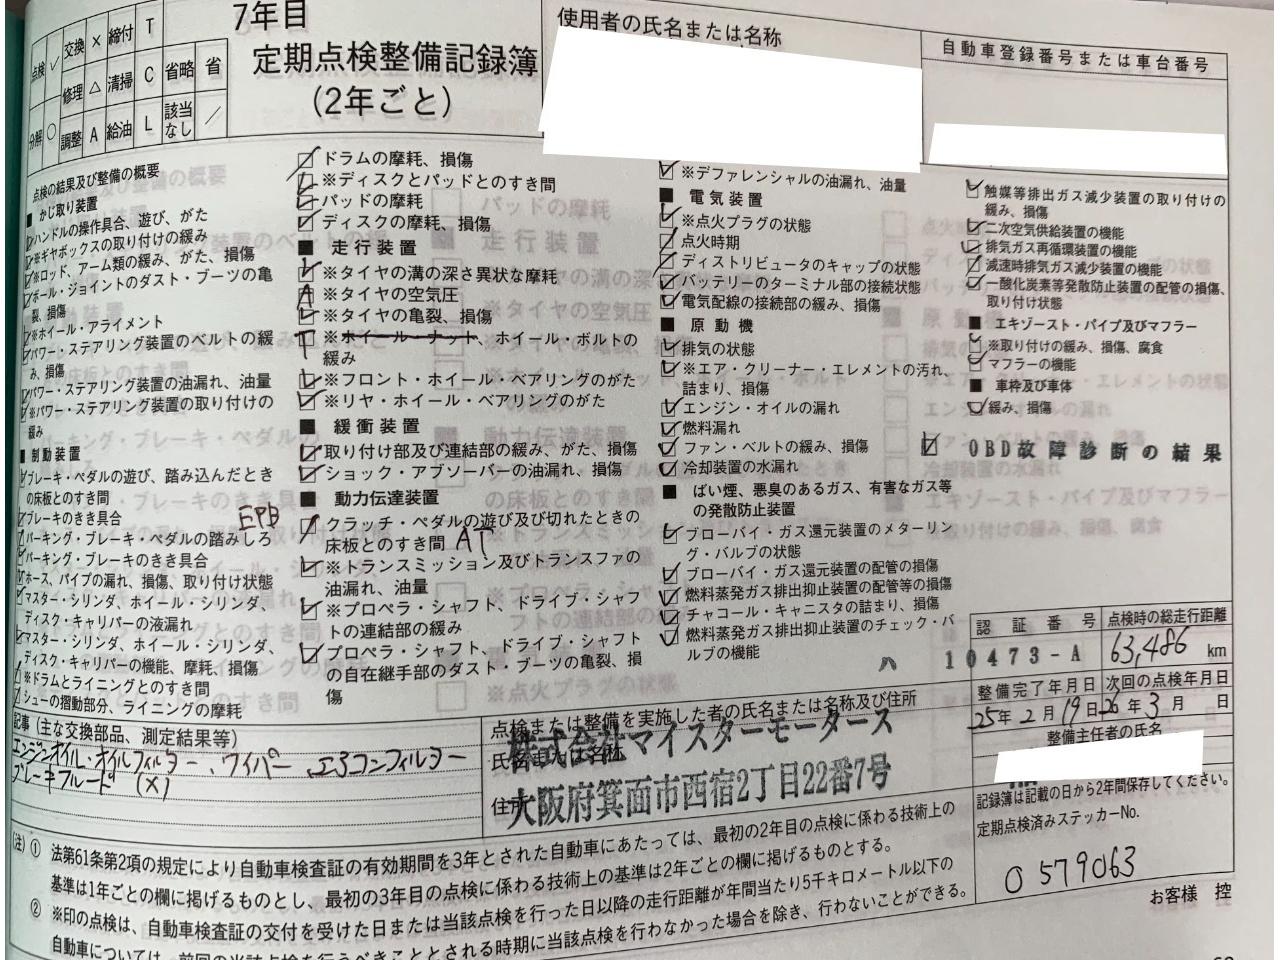 7年目
定期点検整備記録簿
(2年ごと)
点検 ✓ 交換 × 締付 T
修理 △ 清掃 C 省略 省
分解 ○ 調整 A 給油 L 該当なし ／
使用者の氏名または名称
自動車登録番号または車台番号
点検の結果及び整備の概要
■ かじ取り装置
ハンドルの操作具合、遊び、がた
※ギヤボックスの取り付けの緩み
※ロッド、アーム類の緩み、がた、損傷
ボール・ジョイントのダスト・ブーツの亀
裂、損傷
※ホイール・アライメント
パワー・ステアリング装置のベルトの緩
み、損傷
パワー・ステアリング装置の油漏れ、油量
※パワー・ステアリング装置の取り付けの
緩み
■ 制動装置
ブレーキ・ペダルの遊び、踏み込んだとき
の床板とのすき間
ブレーキのきき具合
EPB
パーキング・ブレーキ・ペダルの踏みしろ
パーキング・ブレーキのきき具合
ホース、パイプの漏れ、損傷、取り付け状態
マスター・シリンダ、ホイール・シリンダ、
ディスク・キャリパーの液漏れ
マスター・シリンダ、ホイール・シリンダ、
ディスク・キャリパーの機能、摩耗、損傷
※ドラムとライニングとのすき間
シューの摺動部分、ライニングの摩耗
ドラムの摩耗、損傷
※ディスクとパッドとのすき間
パッドの摩耗
ディスクの摩耗、損傷
■ 走行装置
※タイヤの溝の深さ異状な摩耗
A ※タイヤの空気圧
※タイヤの亀裂、損傷
T ※ホイール・ナット、ホイール・ボルトの
緩み
※フロント・ホイール・ベアリングのがた
※リヤ・ホイール・ベアリングのがた
■ 緩衝装置
取り付け部及び連結部の緩み、がた、損傷
ショック・アブソーバーの油漏れ、損傷
■ 動力伝達装置
クラッチ・ペダルの遊び及び切れたときの
床板とのすき間 AT
※トランスミッション及びトランスファの
油漏れ、油量
※プロペラ・シャフト、ドライブ・シャフ
トの連結部の緩み
プロペラ・シャフト、ドライブ・シャフト
の自在継手部のダスト・ブーツの亀裂、損
傷
※デファレンシャルの油漏れ、油量
■ 電気装置
※点火プラグの状態
点火時期
ディストリビュータのキャップの状態
バッテリーのターミナル部の接続状態
電気配線の接続部の緩み、損傷
■ 原動機
排気の状態
※エア・クリーナー・エレメントの汚れ、
詰まり、損傷
エンジン・オイルの漏れ
燃料漏れ
ファン・ベルトの緩み、損傷
冷却装置の水漏れ
■ ばい煙、悪臭のあるガス、有害なガス等
の発散防止装置
ブローバイ・ガス還元装置のメターリン
グ・バルブの状態
ブローバイ・ガス還元装置の配管の損傷
燃料蒸発ガス排出抑止装置の配管等の損傷
チャコール・キャニスタの詰まり、損傷
燃料蒸発ガス排出抑止装置のチェック・バ
ルブの機能
触媒等排出ガス減少装置の取り付けの
緩み、損傷
二次空気供給装置の機能
排気ガス再循環装置の機能
減速時排気ガス減少装置の機能
一酸化炭素等発散防止装置の配管の損傷、
取り付け状態
■ エキゾースト・パイプ及びマフラー
※取り付けの緩み、損傷、腐食
マフラーの機能
■ 車枠及び車体
緩み、損傷
OBD故障診断の結果
認証番号
ハ 10473-A
点検時の総走行距離
63,486 km
整備完了年月日
25年2月19日
次回の点検年月日
26年3月 日
整備主任者の氏名
記事（主な交換部品、測定結果等）
エンジンオイル・オイルフィルター、ワイパー、エアコンフィルター
ブレーキフルード (×)
点検または整備を実施した者の氏名または名称及び住所
氏名または名称
株式会社マイスターモータース
住所
大阪府箕面市西宿2丁目22番7号
記録簿は記載の日から2年間保存してください。
定期点検済みステッカーNo.
0579063
お客様 控
(注) ① 法第61条第2項の規定により自動車検査証の有効期間を3年とされた自動車にあたっては、最初の2年目の点検に係わる技術上の
基準は1年ごとの欄に掲げるものとし、最初の3年目の点検に係わる技術上の基準は2年ごとの欄に掲げるものとする。
② ※印の点検は、自動車検査証の交付を受けた日または当該点検を行った日以降の走行距離が年間当たり5千キロメートル以下の
自動車については、前回の当該点検を行うべきこととされる時期に当該点検を行わなかった場合を除き、行わないことができる。